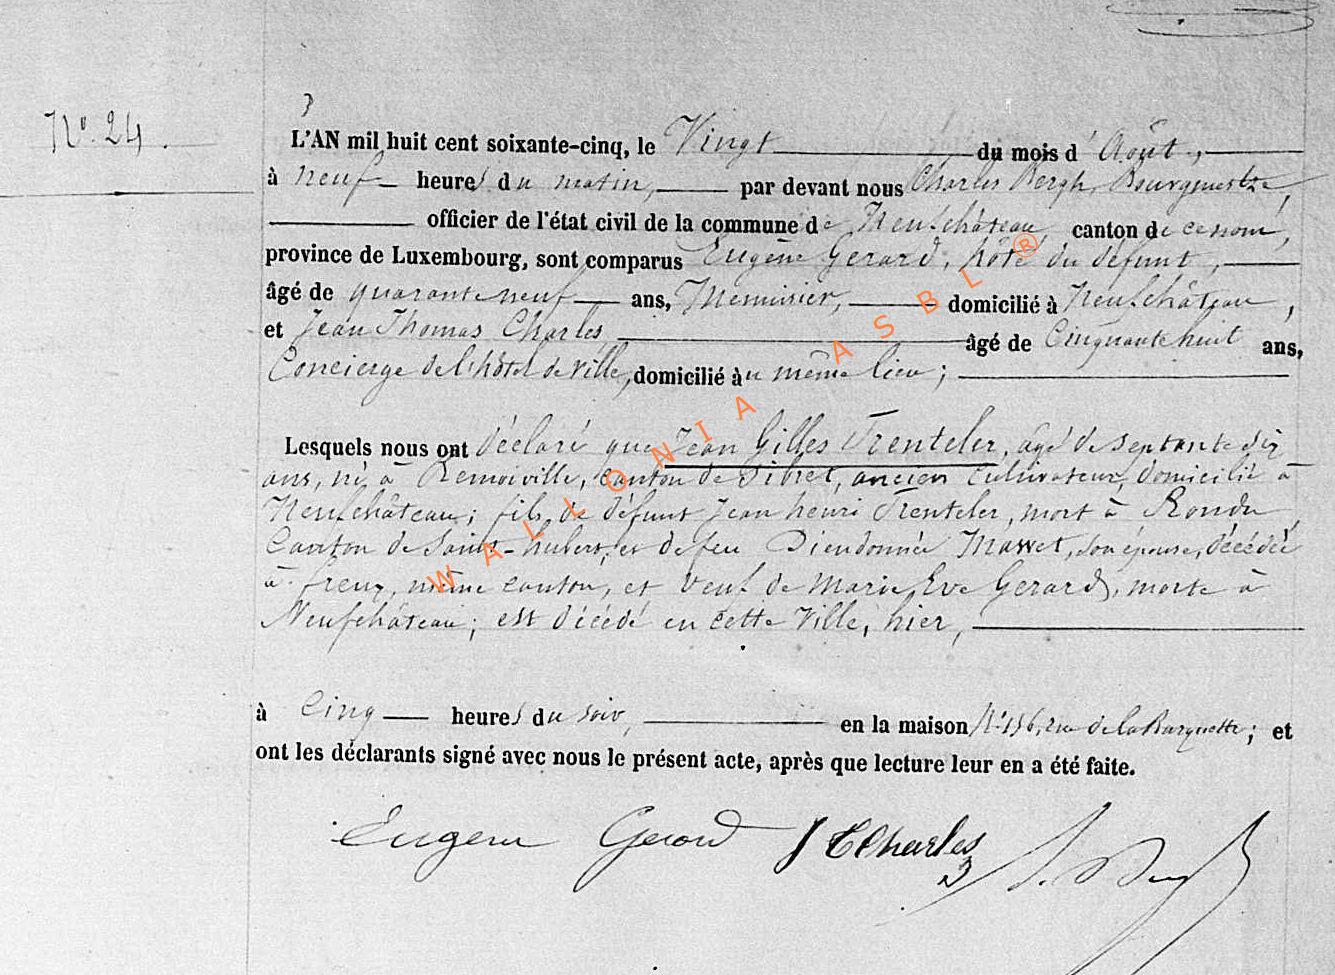 3
N°. 24.
L'AN mil huit cent soixante-cinq, le Vingt du mois d'Août,
à neuf heures du matin, par devant nous Charles Bergh, Bourgmestre,
officier de l'état civil de la commune de Neufchâteau, canton de ce nom,
province de Luxembourg, sont comparus Eugène Gerard, hôte du défunt,
âgé de quarante neuf ans, Menuisier, domicilié à Neufchâteau,
et Jean Thomas Charles, âgé de Cinquante huit ans,
Concierge de l'hôtel de ville, domicilié au même lieu;
Lesquels nous ont déclaré que Jean Gilles Trenteler, âgé de septante dix
ans, né à Remoiville, canton de Sibret, ancien Cultivateur, domicilié à
Neufchâteau; fils de défunt Jean henri Trenteler, mort à Rondu,
Canton de Saint-hubert, et de feu Dieudonnée Masset, son épouse, décédée
à freux, même canton, et veuf de Marie Eve Gerard, morte à
Neufchâteau; est décédé en cette Ville, hier,
à Cinq heures du soir, en la maison N° 156, rue de la Barquette; et
ont les déclarants signé avec nous le présent acte, après que lecture leur en a été faite.
Eugene Gerard JTCharles
WALLONIA ASBL ®